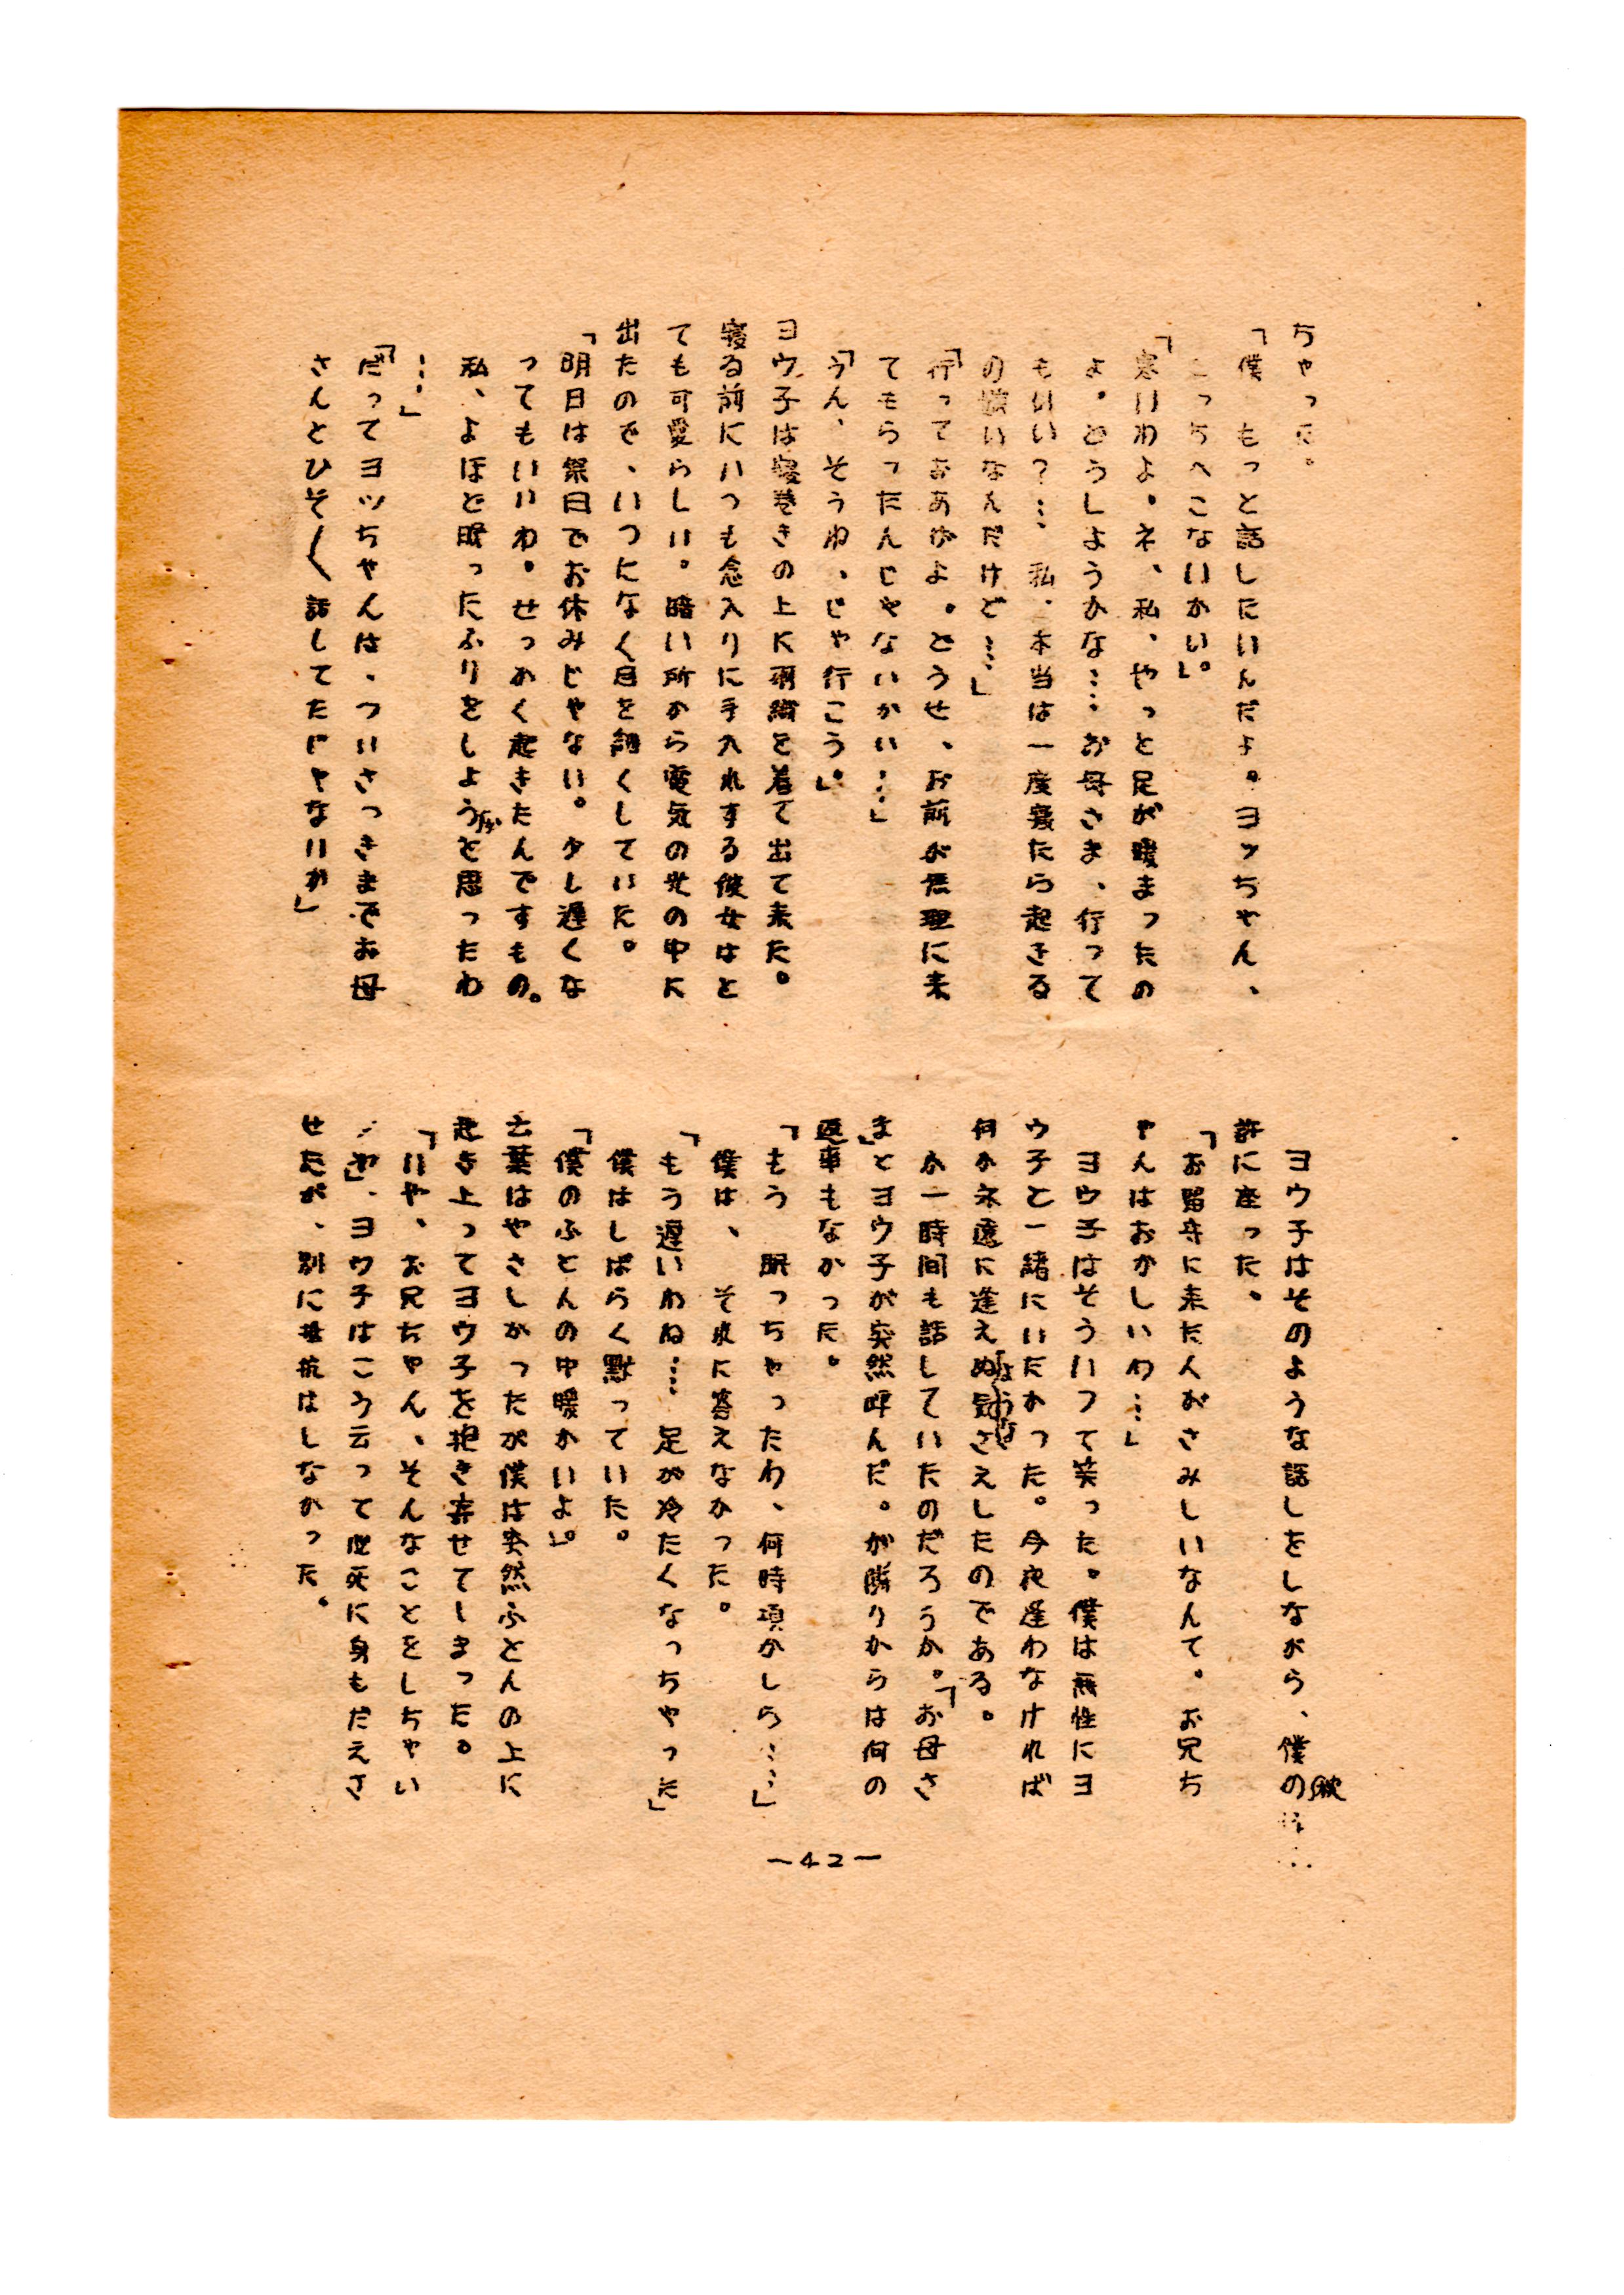 ちゃった。
「僕 もっと話したいんだよ。ヨッちゃん、
こっちへこないかい」。
「寒いわよ。ネ、私、やっと足が暖まったの
よ。どうしようかな…お母さま、行って
もいい？… 私、本当は一度寝たら起きる
の嫌いなんだけど…」
「行っておあげよ。どうせ、お前が無理に来
てもらったんじゃないかい…」
「うん、そうね、じゃ行こう」。
ヨウ子は寝巻きの上に羽織を着て出て来た。
寝る前にいつも念入りに手入れする彼女はと
ても可愛らしい。暗い所から電気の光の中に
出たので、いつになく目を細くしていた。
「明日は祭日でお休みじゃない。少し遅くな
ってもいいわ。せっかく起きたんですもの。
私、よほど眠ったふりをしようかと思ったわ
…」
「だってヨッちゃんは、ついさっきまでお母
さんとひそ〱話してたじゃないか」
ヨウ子はそのような話しをしながら、僕の枕
許に座った。
「お留守に来た人がさみしいなんて。お兄ち
ゃんはおかしいわ…」
ヨウ子はそういって笑った。僕は無性にヨ
ウ子と一緒にいたかった。今夜逢わなければ
何か永遠に逢えぬような気さえしたのである。
か一時間も話していたのだろうか。「お母さ
ま」とヨウ子が突然呼んだ。が隣りからは何の
返事もなかった。
「もう 眠っちゃったわ、何時頃かしら…」
僕は、 それに答えなかった。
「もう遅いわね… 足が冷たくなっちゃった」
僕はしばらく黙っていた。
「僕のふとんの中暖かいよ」。
言葉はやさしかったが僕は突然ふとんの上に
起き上ってヨウ子を抱き寄せてしまった。
「いや、お兄ちゃん、そんなことをしちゃい
や」、ヨウ子はこう云って必死に身もだえさ
せたが、別に抵抗はしなかった。
―42―